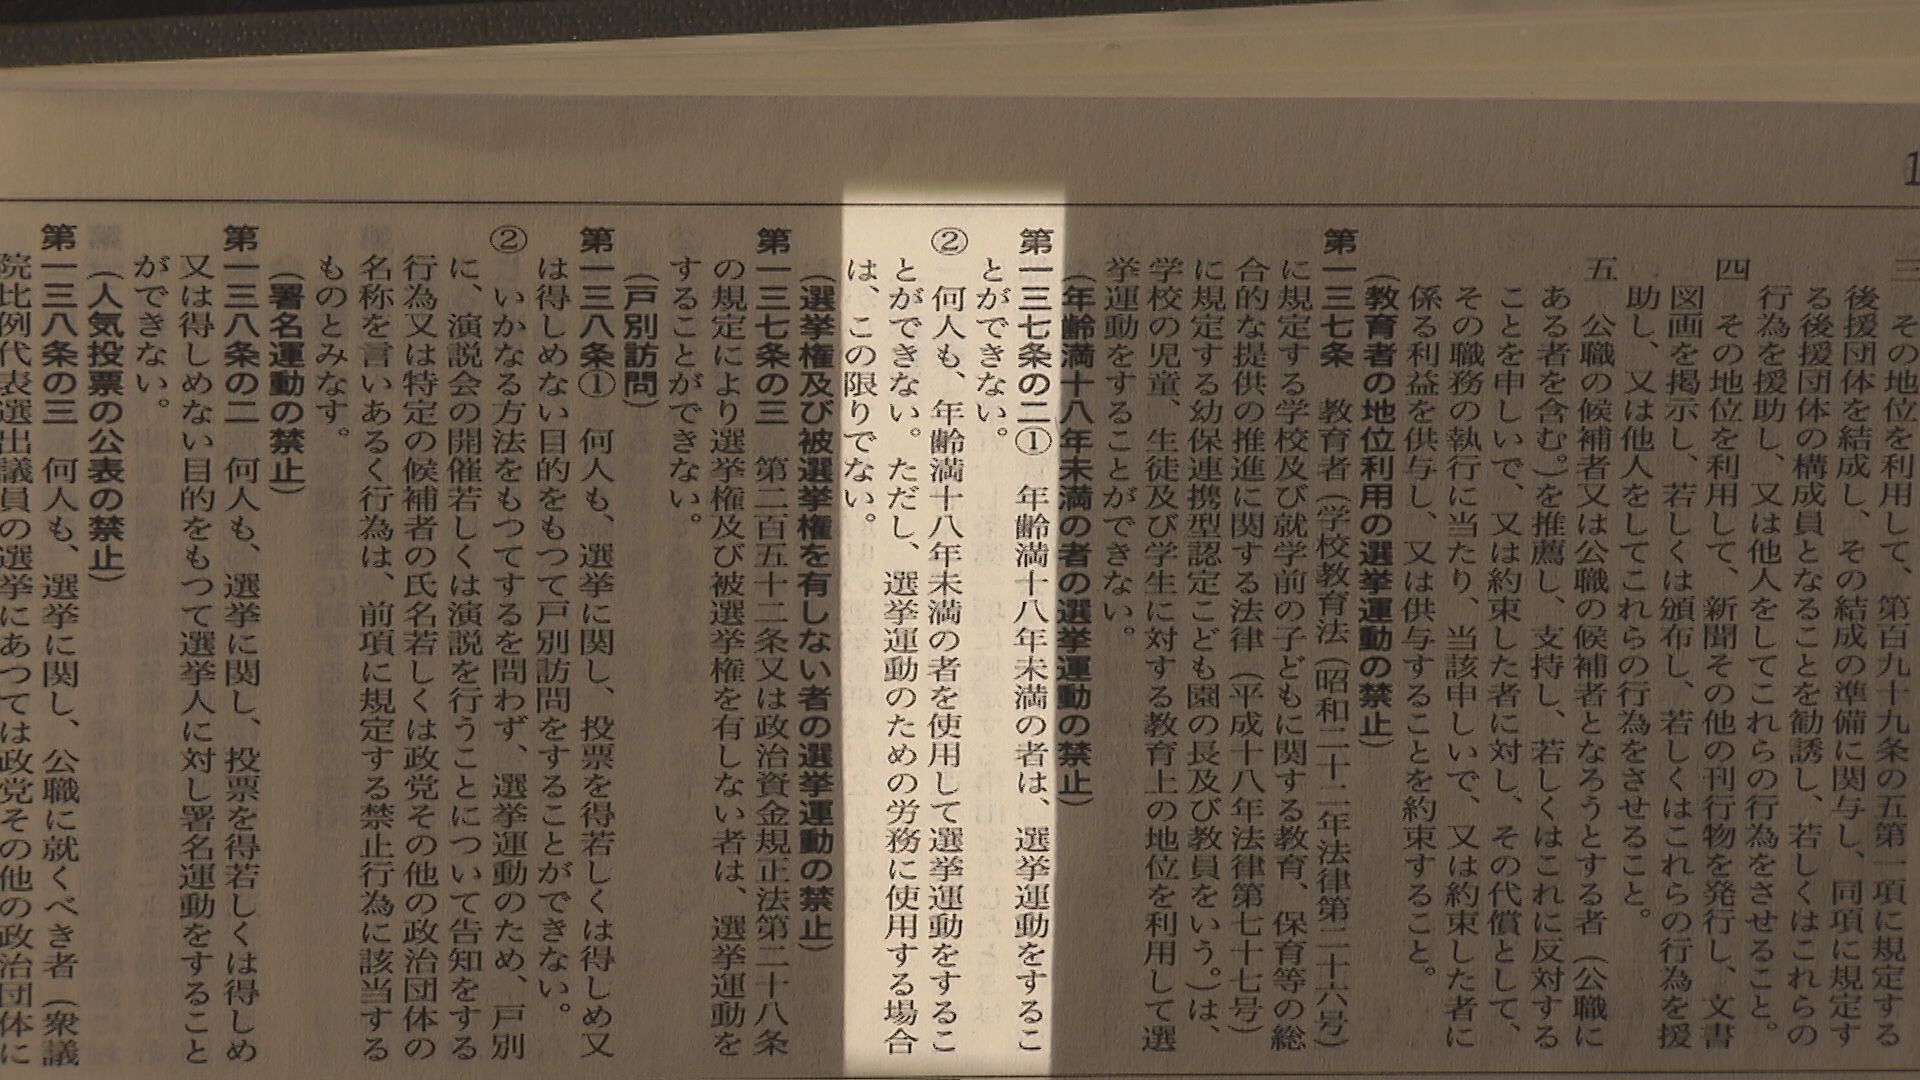 1
三 その地位を利用して、第百九十九条の五第一項に規定する
後援団体を結成し、その結成の準備に関与し、同項に規定す
る後援団体の構成員となることを勧誘し、若しくはこれらの
行為を援助し、又は他人をしてこれらの行為をさせること。
四 その地位を利用して、新聞その他の刊行物を発行し、文書
図画を掲示し、若しくは頒布し、若しくはこれらの行為を援
助し、又は他人をしてこれらの行為をさせること。
五 公職の候補者又は公職の候補者となろうとする者(公職に
ある者を含む。)を推薦し、支持し、若しくはこれに反対する
ことを申しいで、又は約束した者に対し、その代償として、
その職務の執行に当たり、当該申しいで、又は約束した者に
係る利益を供与し、又は供与することを約束すること。
(教育者の地位利用の選挙運動の禁止)
第一三七条 教育者(学校教育法(昭和二十二年法律第二十六号)
に規定する学校及び就学前の子どもに関する教育、保育等の総
合的な提供の推進に関する法律(平成十八年法律第七十七号)
に規定する幼保連携型認定こども園の長及び教員をいう。)は、
学校の児童、生徒及び学生に対する教育上の地位を利用して選
挙運動をすることができない。
(年齢満十八年未満の者の選挙運動の禁止)
第一三七条の二① 年齢満十八年未満の者は、選挙運動をするこ
とができない。
② 何人も、年齢満十八年未満の者を使用して選挙運動をするこ
とができない。ただし、選挙運動のための労務に使用する場合
は、この限りでない。
(選挙権及び被選挙権を有しない者の選挙運動の禁止)
第一三七条の三 第二百五十二条又は政治資金規正法第二十八条
の規定により選挙権及び被選挙権を有しない者は、選挙運動を
することができない。
(戸別訪問)
第一三八条① 何人も、選挙に関し、投票を得若しくは得しめ又
は得しめない目的をもつて戸別訪問をすることができない。
② いかなる方法をもつてするを問わず、選挙運動のため、戸別
に、演説会の開催若しくは演説を行うことについて告知をする
行為又は特定の候補者の氏名若しくは政党その他の政治団体の
名称を言いあるく行為は、前項に規定する禁止行為に該当する
ものとみなす。
(署名運動の禁止)
第一三八条の二 何人も、選挙に関し、投票を得若しくは得しめ
又は得しめない目的をもつて選挙人に対し署名運動をすること
ができない。
(人気投票の公表の禁止)
第一三八条の三 何人も、選挙に関し、公職に就くべき者(衆議
院比例代表選出議員の選挙にあつては政党その他の政治団体に